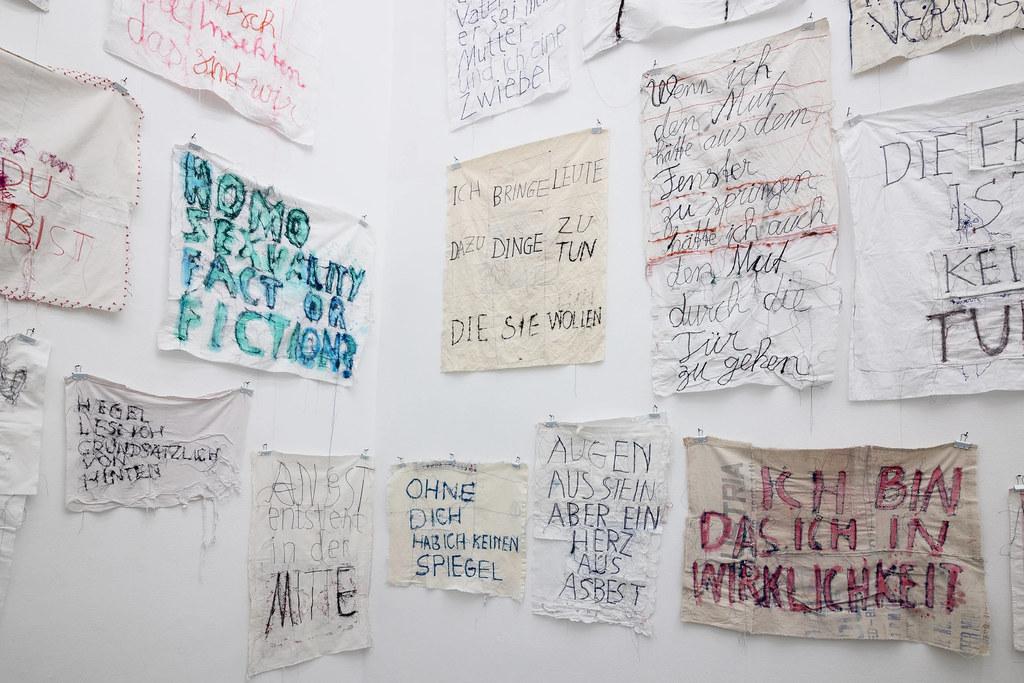 das sind wir
Vater
er sei mein
Mutter
und ich eine
Zwiebel
DU
BIST
HOMO
SEXUALITY
FACT OR
FICTION?
ICH BRINGE LEUTE
DAZU DINGE ZU
TUN
DIE SIE WOLLEN
Wenn ich
den Mut
hätte aus dem
Fenster
zu springen
hätte ich auch
den Mut
durch die
Tür
zu gehen
DIE
IST
KEI
TU
HEGEL
LES ICH
GRUNDSÄTZLICH
VON
HINTEN
ANGST
entsteht
in der
MITTE
OHNE
DICH
HAB ICH KEINEN
SPIEGEL
AUGEN
AUS STEIN
ABER EIN
HERZ
AUS
ASBEST
ICH BIN
DAS ICH IN
WIRKLICHKEIT